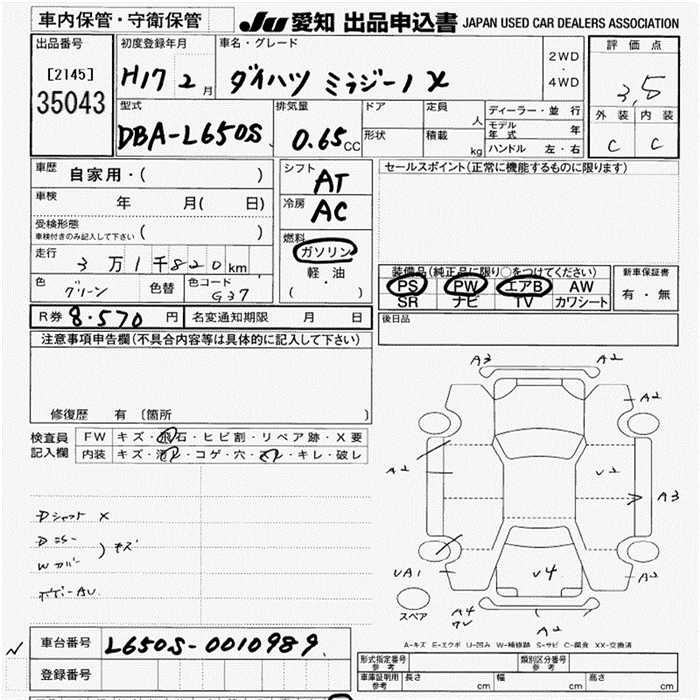 車内保管・守衛保管 JU 愛知 出品申込書 JAPAN USED CAR DEALERS ASSOCIATION
出品番号 初度登録年月 車名・グレード 2WD ・ 4WD 評価点
[2145] 35043 H17 2月 ダイハツ ミラジーノ X 3.5
型式 排気量 ドア 定員 人 ディーラー・並行 外装 内装
DBA-L650S 0.65cc 形状 積載 kg モデル年式 年 C C
ハンドル 左・右
車歴 自家用・( ) シフト AT セールスポイント(正常に機能するものに限ります)
車検 年 月( 日) 冷房 AC
受検形態
車検付きのみ記入して下さい ( )
走行 3万1千820km 燃料 ガソリン 軽油 ( ・ )
色 グリーン 色替 色コード G37
装備品(純正品に限り○をつけてください) 新車保証書
PS PW エアB AW 有・無
SR ナビ TV カワシート
R券 8.570円 名変通知期限 月 日 後日品
注意事項申告欄(不具合内容等は具体的に記入して下さい)
修復歴 有 〔箇所 〕
検査員記入欄 FW キズ・飛石・ヒビ割・リペア跡・X要
内装 キズ・汚レ・コゲ・穴・スレ・キレ・破レ
Dシャフト X
キズ
ボデーAU
A3 A2
A2
A2 U2 A3
UA1 U4 A2
スペア A4 A2
A-キズ E-エクボ U-凹み W-補修跡 S-サビ C-腐食 XX-交換済
車台番号 L650S-0010989
登録番号
形式指定番号 参考 類別区分番号 参考
車庫証明用 参考 長さ cm 幅 cm 高さ cm